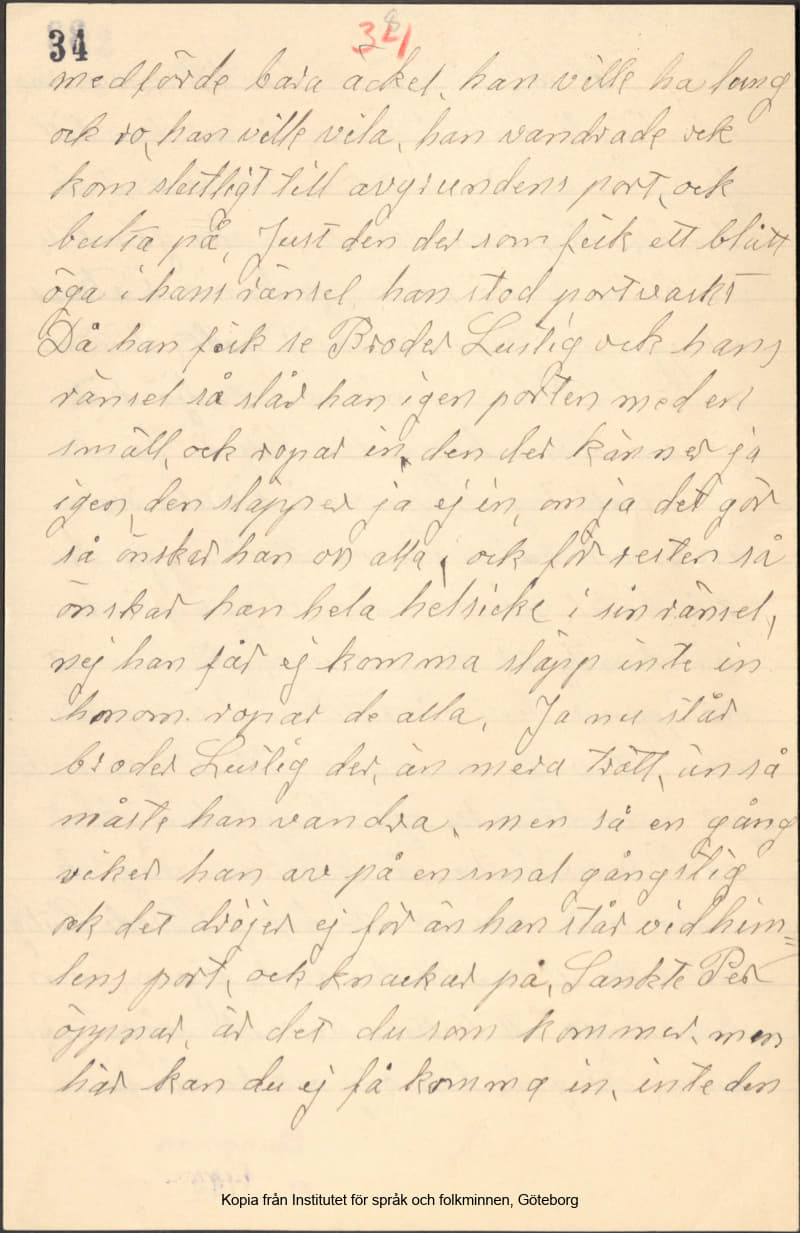 34
34
8
medförde bara äckel, han ville ha lung
ock ro, han ville vila, han vandrade ock
kom slutligt till avgrundens port, ock
bulta på, Just den der som fick ett blått
öga i hans ränsel han stod portvackt
Då han fick se Broder Lustig ock hans
ränsel så slår han igen porten med en
smäll, ock ropar in, den der känner ja
igen, den släpper ja ej in, om ja det gör
så önskar han oss alla, ock för resten så
önskar han hela helsicke i sin ränsel,
nej han får ej komma släpp inte in
honom ropar de alla, Ja nu står
broder Lustig der, än mera trött, än så
måste han vandra, men så en gång
viker han av på en smal gångstig
ock det dröjer ej för än han står vid him=
lens port, ock knackar på, Sankte Per
öppnar, är det du som kommer, men
här kan du ej få komma in, inte den
Kopia från Institutet för språk och folkminnen, Göteborg